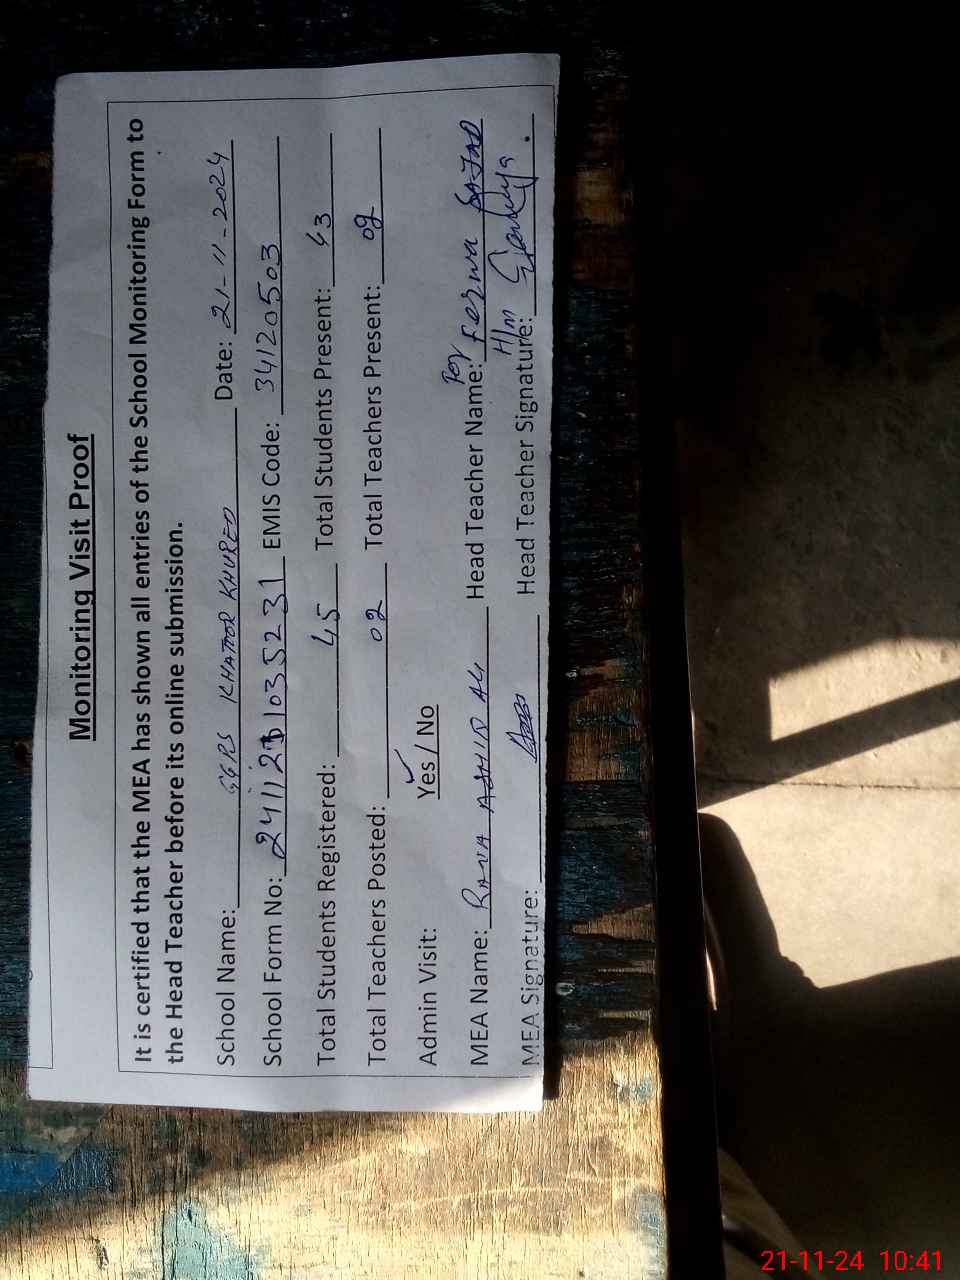 Monitoring Visit Proof
It is certified that the MEA has shown all entries of the School Monitoring Form to
the Head Teacher before its online submission.
School Name: GGPS KHATOOR KHURED Date: 21-11-2024
School Form No: 2411121035231 EMIS Code: 34120503
Total Students Registered: 45 Total Students Present: 43
Total Teachers Posted: 02 Total Teachers Present: 02
Admin Visit: Yes / No
MEA Name: RANA ASHIR ALI Head Teacher Name: For Ferwa SAJAD
H/M
MEA Signature: Head Teacher Signature:
21-11-24 10:41